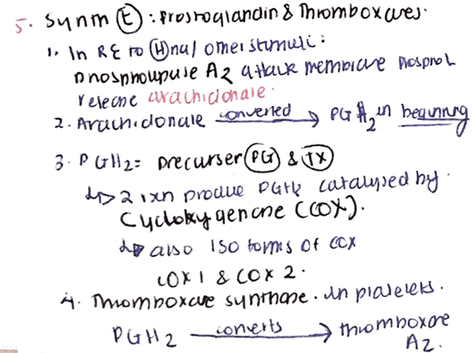 5. Synm (t) : Prostoglandin & Thromboxares.
1. In RE to (H)nal other stimuli :
Phospholipase A2 attack membrane Phosphol
release arachidonate.
2. Arachidonate converted → PGH2 in beginning
3. PGH2 = precurser (PG) & (TX)
↳ 2 rxn produce PGH2 catalysed by
Cyclohygenone (COX).
↳ also Iso forms of cox
COX 1 & COX 2.
4. Thromboxare synthase. In platelets.
PGH2 converts → thromboxare
A2.